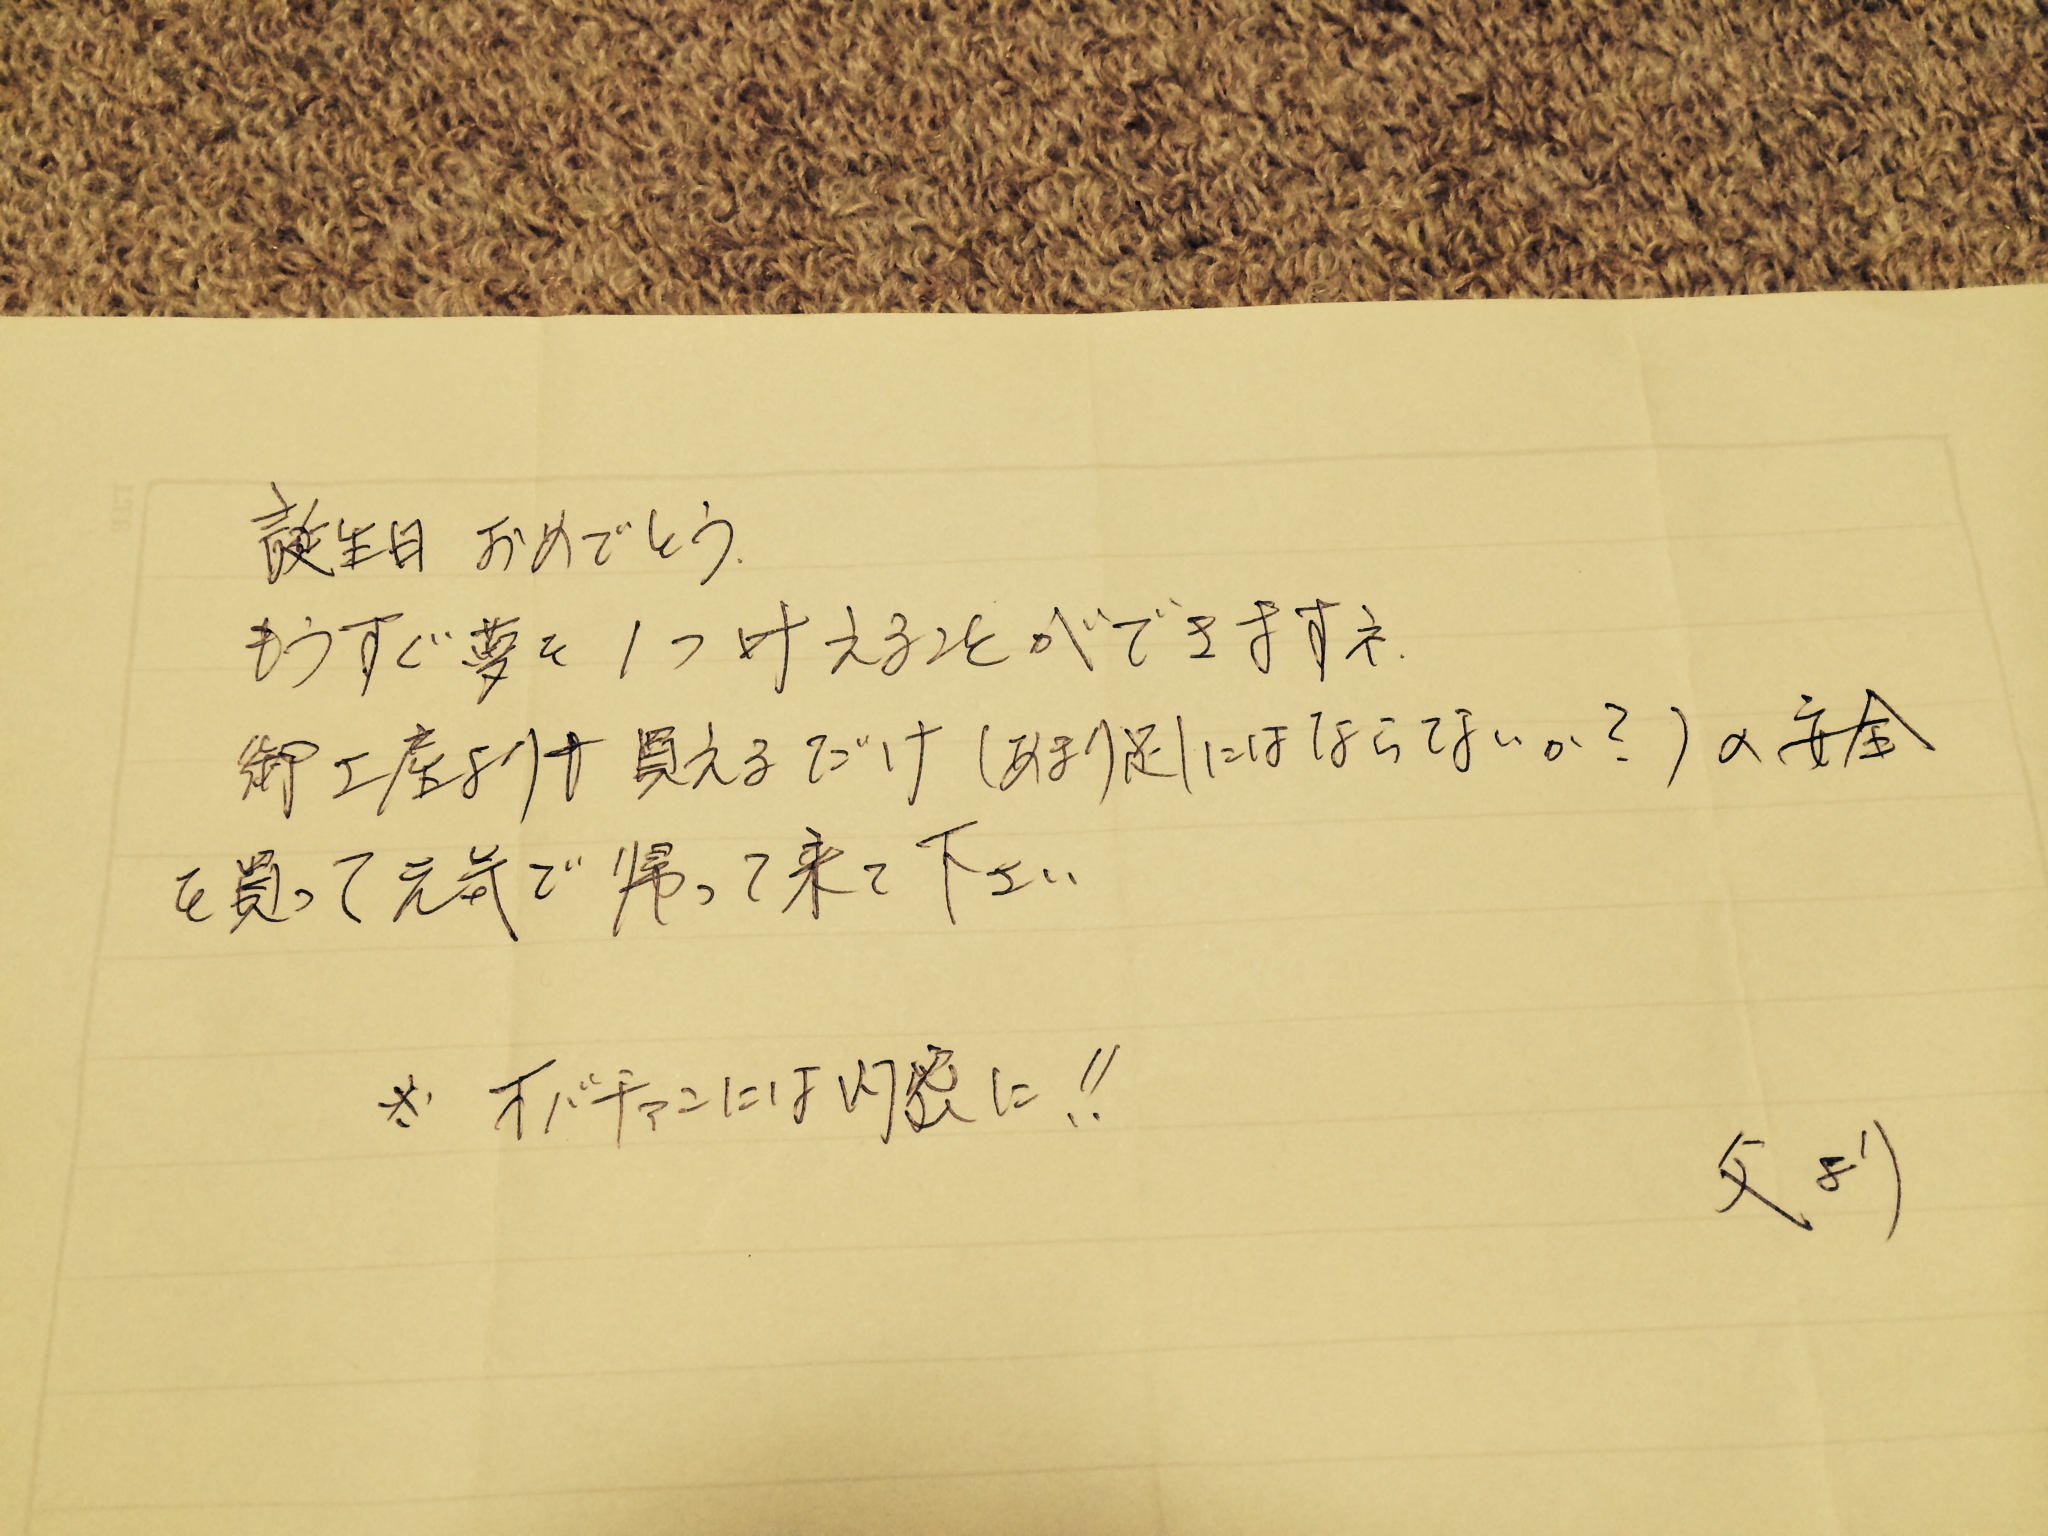 誕生日 おめでとう.
もうすぐ夢を1つ叶えることができますネ.
御土産よりも買えるだけ(あまり足しにはならないか?)の安全
を買って元気で帰って来て下さい
※ オバチャンには内密に!!
父より